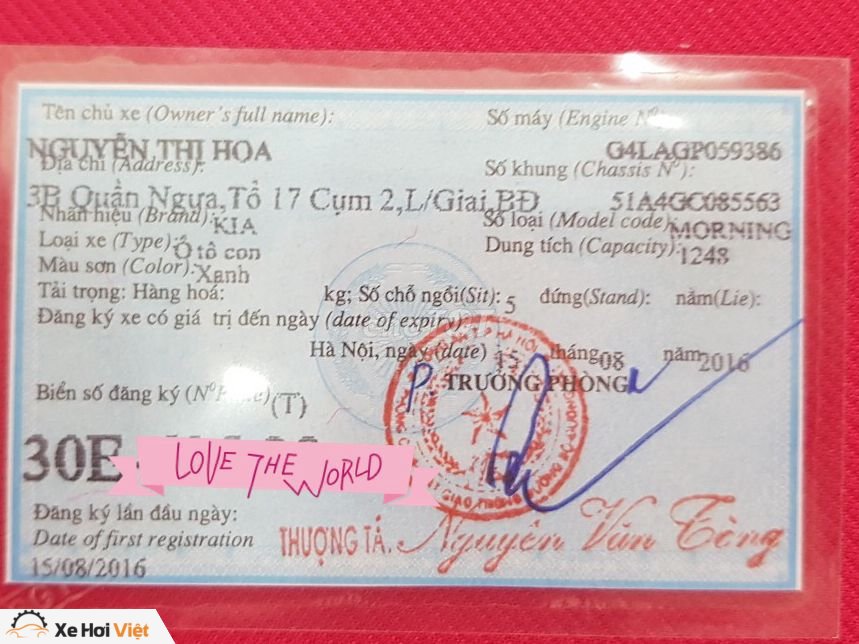 Tên chủ xe (Owner's full name):
Số máy (Engine N⁰):
NGUYỄN THỊ HOA
G4LAGP059386
Địa chỉ (Address):
Số khung (Chassis N⁰):
3B Quần Ngựa,Tổ 17 Cụm 2,L/Giai,BĐ
51A4GC085563
Nhãn hiệu (Brand): KIA
Số loại (Model code): MORNING
Loại xe (Type): Ô tô con
Dung tích (Capacity): 1248
Màu sơn (Color): Xanh
Tải trọng: Hàng hoá: kg; Số chỗ ngồi(Sit): 5 đứng(Stand): nằm(Lie):
Đăng ký xe có giá trị đến ngày (date of expiry)
Hà Nội, ngày (date) 15 tháng 08 năm 2016
P. TRƯỞNG PHÒNG
Biển số đăng ký (N⁰ Plate) (T)
30E
LOVE THE WORLD
Đăng ký lần đầu ngày:
Date of first registration
15/08/2016
THƯỢNG TÁ. Nguyễn Văn Tòng
Xe Hơi Việt